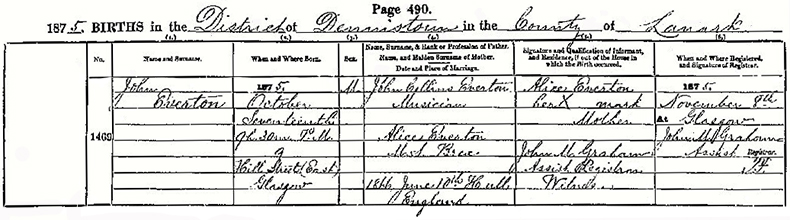 Page 490.
1875. BIRTHS in the District of Dennistoun in the County of Lanark
(1.) (2.) (3.) (4.) (5.) (6.)
No. Name and Surname. When and Where Born. Sex. Name, Surname, & Rank or Profession of Father. Name, and Maiden Surname of Mother. Date and Place of Marriage. Signature and Qualification of Informant, and Residence, if out of the House in which the Birth occurred. When and Where Registered, and Signature of Registrar.
John 1875. M John Collins Everton Alice Everton 1875.
Everton October Musician her X mark November 8th
Seventeenth Mother At Glasgow
1469 9h 30m P.M. Alice Everton John M. Graham
9 M.S. John M. Graham Assist Registrar.
Hill Street (East) Assist Registrar
Glasgow 1866 June 10th Hull Witness
England